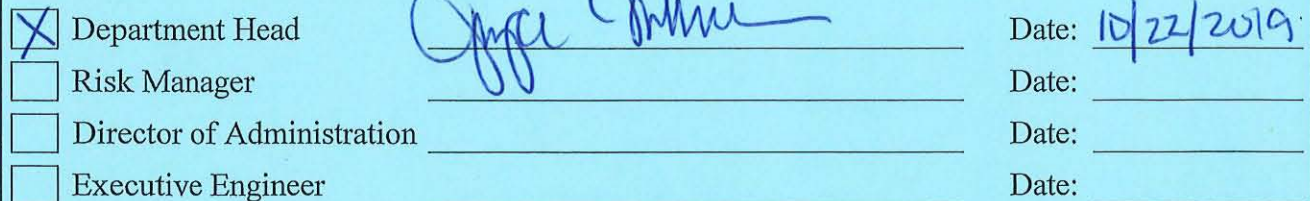 X Department Head Date: 10/22/2019
Risk Manager Date:
Director of Administration Date:
Executive Engineer Date: